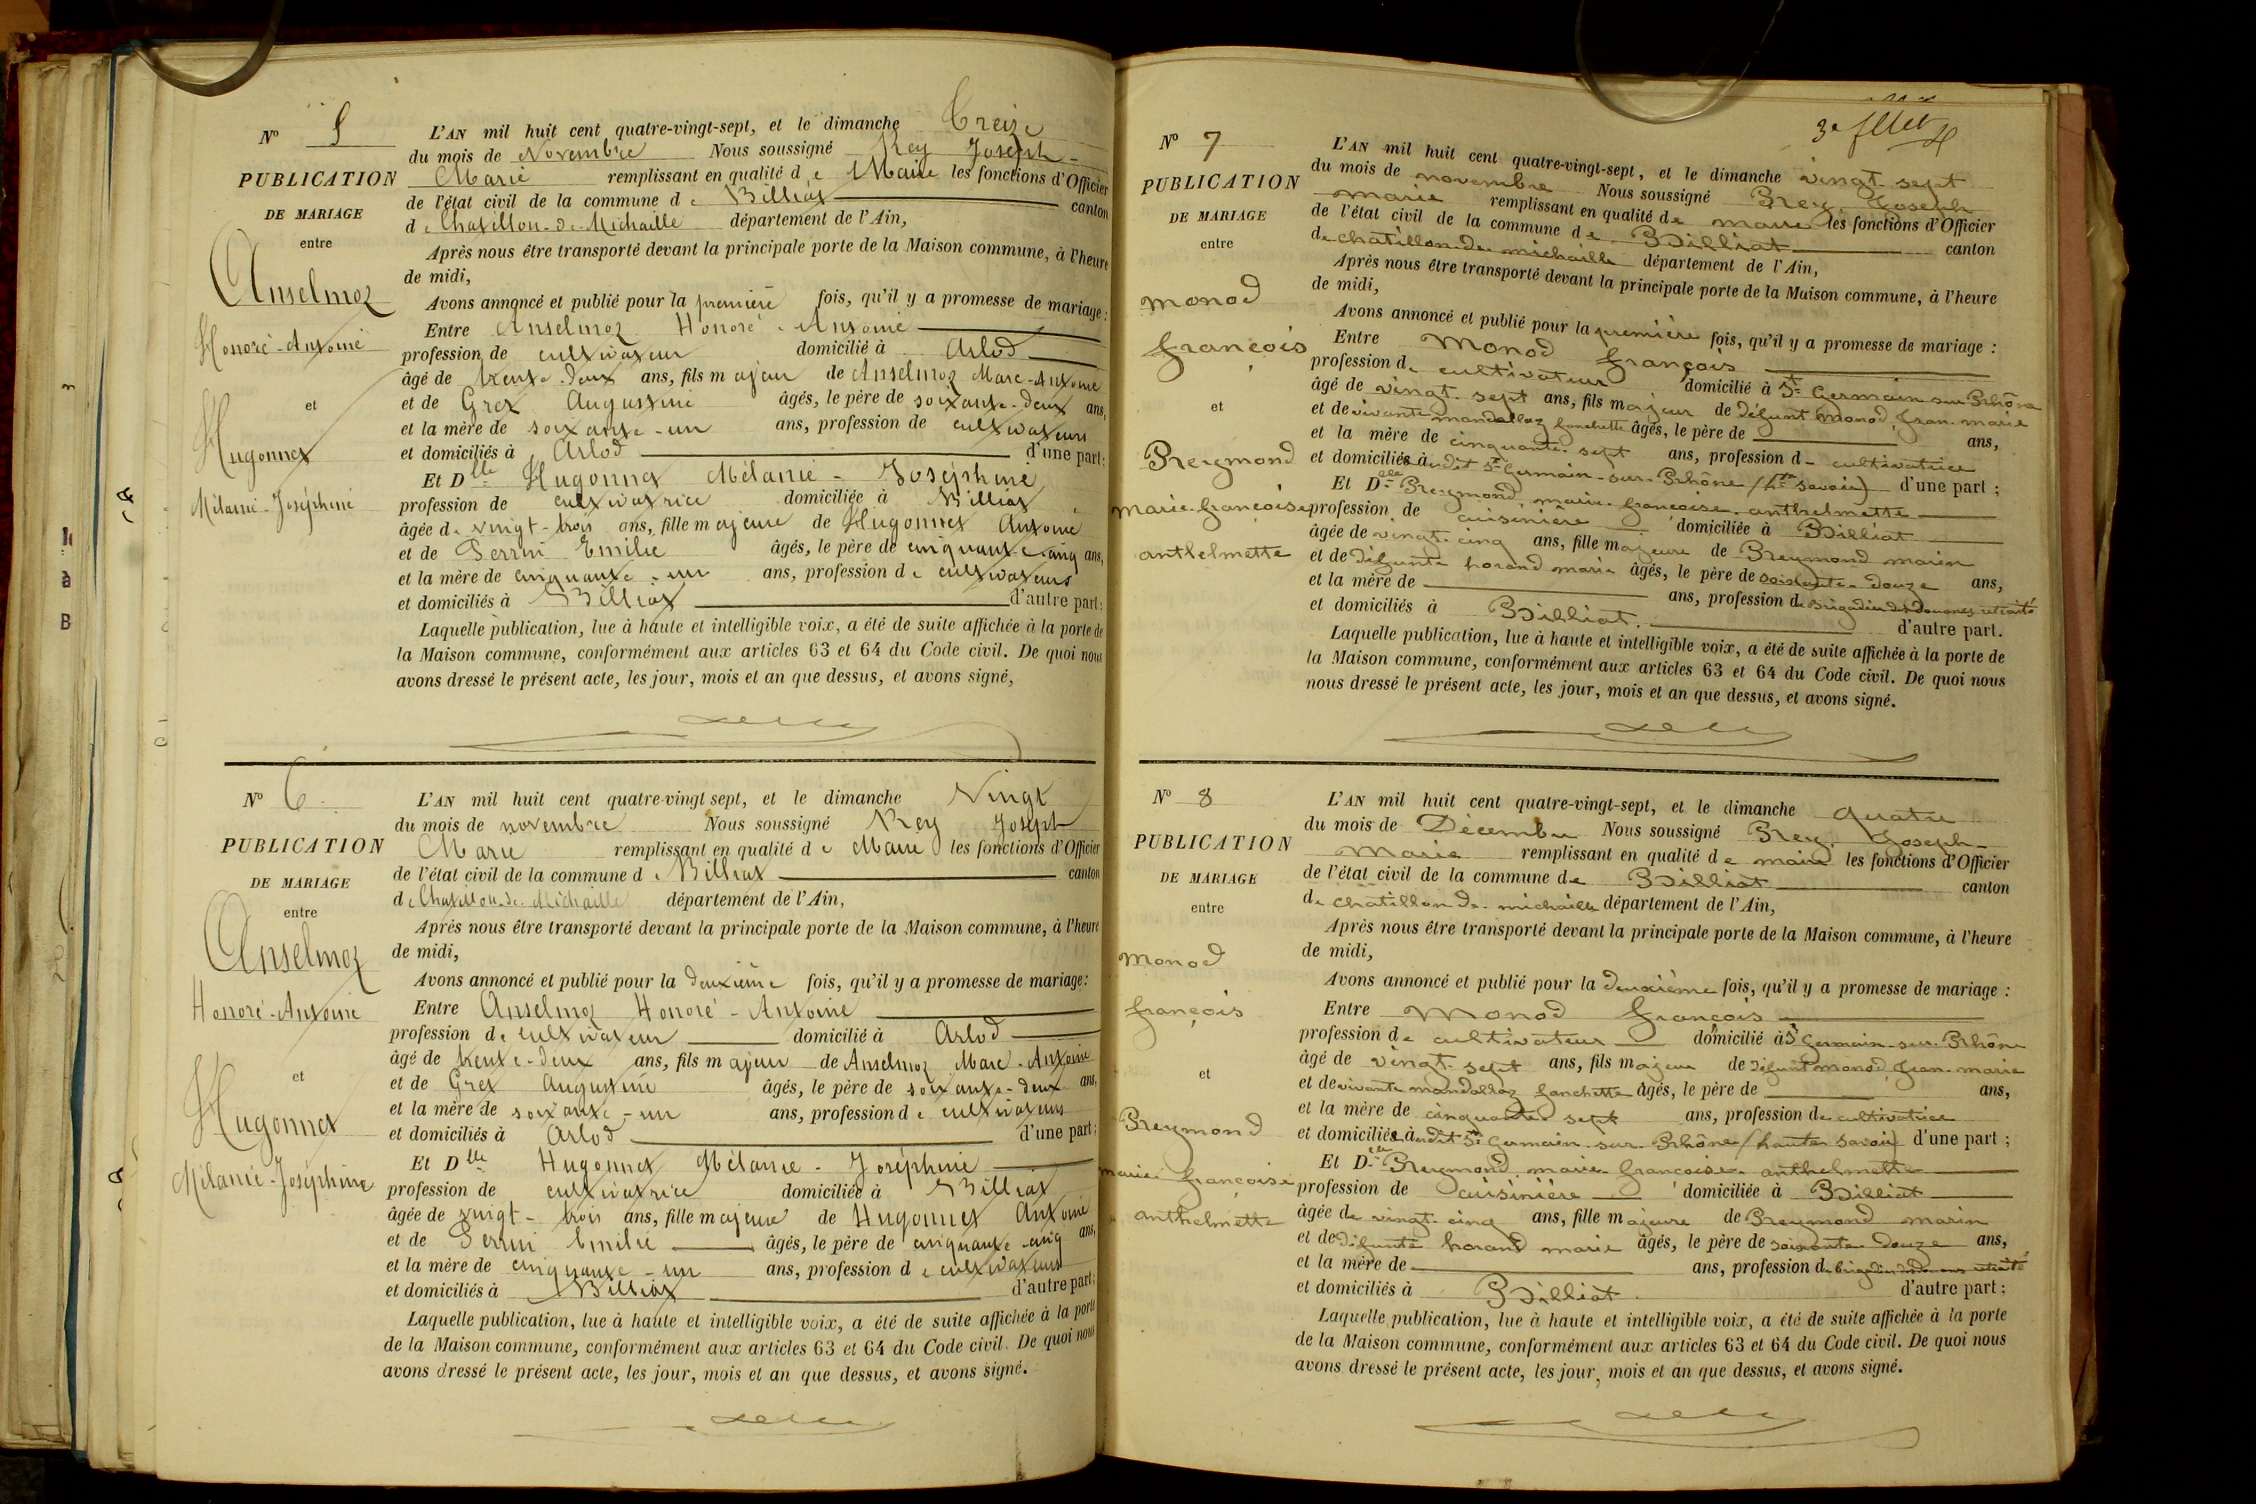 N° 5
PUBLICATION
DE MARIAGE
entre
Anselmoz
Honoré-Antoine
et
Hugonnet
Mélanie-Joséphine
L'AN mil huit cent quatre-vingt-sept, et le dimanche Treize
du mois de Novembre Nous soussigné Rey Joseph-
Marie remplissant en qualité de Maire les fonctions d'Officier
de l'état civil de la commune de Billiat canton
de Chatillon-de-Michaille département de l'Ain,
Après nous être transporté devant la principale porte de la Maison commune, à l'heure
de midi,
Avons annoncé et publié pour la première fois, qu'il y a promesse de mariage :
Entre Anselmoz Honoré-Antoine
profession de cultivateur domicilié à Arlod
âgé de trente-deux ans, fils majeur de Anselmoz Marc-Antoine
et de Grex Augustine âgés, le père de soixante-deux ans,
et la mère de soixante-un ans, profession de cultivateurs
et domiciliés à Arlod d'une part;
Et Dlle Hugonnet Mélanie-Joséphine
profession de cultivatrice domiciliée à Billiat
âgée de vingt-trois ans, fille majeure de Hugonnet Antoine
et de Perrin Emilie âgés, le père de cinquante-cinq ans,
et la mère de cinquante-un ans, profession de cultivateurs
et domiciliés à Billiat d'autre part;
Laquelle publication, lue à haute et intelligible voix, a été de suite affichée à la porte de
la Maison commune, conformément aux articles 63 et 64 du Code civil. De quoi nous
avons dressé le présent acte, les jour, mois et an que dessus, et avons signé,
N° 6
PUBLICATION
DE MARIAGE
entre
Anselmoz
Honoré-Antoine
et
Hugonnet
Mélanie-Joséphine
L'AN mil huit cent quatre-vingt sept, et le dimanche Vingt
du mois de novembre Nous soussigné Rey Joseph-
Marie remplissant en qualité de Maire les fonctions d'Officier
de l'état civil de la commune de Billiat canton
de Chatillon-de-Michaille département de l'Ain,
Après nous être transporté devant la principale porte de la Maison commune, à l'heure
de midi,
Avons annoncé et publié pour la deuxième fois, qu'il y a promesse de mariage:
Entre Anselmoz Honoré-Antoine
profession de cultivateur domicilié à Arlod
âgé de trente-deux ans, fils majeur de Anselmoz Marc-Antoine
et de Grex Augustine âgés, le père de soixante-deux ans,
et la mère de soixante-un ans, profession de cultivateurs
et domiciliés à Arlod d'une part;
Et Dlle Hugonnet Mélanie-Joséphine
profession de cultivatrice domiciliée à Billiat
âgée de vingt-trois ans, fille majeure de Hugonnet Antoine
et de Perrin Emilie âgés, le père de cinquante-cinq ans,
et la mère de cinquante-un ans, profession de cultivateurs
et domiciliés à Billiat d'autre part;
Laquelle publication, lue à haute et intelligible voix, a été de suite affichée à la porte
de la Maison commune, conformément aux articles 63 et 64 du Code civil. De quoi nous
avons dressé le présent acte, les jour, mois et an que dessus, et avons signé.
N° 7
PUBLICATION
DE MARIAGE
entre
monod
françois
et
Breymond
marie-françoise
anthelmette
L'AN mil huit cent quatre-vingt-sept, et le dimanche vingt-sept
du mois de novembre Nous soussigné Rey Joseph
marie remplissant en qualité de maire les fonctions d'Officier
de l'état civil de la commune de Billiat canton
de chatillon-de-michaille département de l'Ain,
Après nous être transporté devant la principale porte de la Maison commune, à l'heure
de midi,
Avons annoncé et publié pour la première fois, qu'il y a promesse de mariage :
Entre Monod françois
profession de cultivateur domicilié à St Germain-sur-Rhône
âgé de vingt-sept ans, fils majeur de défunt monod, Jean-marie
et de vivante mandallaz fanchette âgés, le père de ans,
et la mère de cinquante-sept ans, profession de cultivatrice
et domiciliés à audit St Germain-sur-Rhône (hte savoie) d'une part ;
Et Dlle Breymond marie-françoise-anthelmette
profession de cuisinière domiciliée à Billiat
âgée de vingt-cinq ans, fille majeure de Breymond marin
et de défunte horand marie âgés, le père de soixante-douze ans,
et la mère de ans, profession de brigadier des douanes retraité
et domiciliés à Billiat. d'autre part.
Laquelle publication, lue à haute et intelligible voix, a été de suite affichée à la porte de
la Maison commune, conformément aux articles 63 et 64 du Code civil. De quoi nous
nous dressé le présent acte, les jour, mois et an que dessus, et avons signé.
N° 8
PUBLICATION
DE MARIAGE
entre
monod
françois
et
Breymond
marie-françoise
anthelmette
L'AN mil huit cent quatre-vingt-sept, et le dimanche quatre
du mois de Décembre Nous soussigné Rey, Joseph-
Marie remplissant en qualité de maire les fonctions d'Officier
de l'état civil de la commune de Billiat canton
de châtillon-de-michaille département de l'Ain,
Après nous être transporté devant la principale porte de la Maison commune, à l'heure
de midi,
Avons annoncé et publié pour la deuxième fois, qu'il y a promesse de mariage :
Entre Monod françois
profession de cultivateur domicilié à St Germain-sur-Rhône
âgé de vingt-sept ans, fils majeur de défunt monod, Jean-marie
et de vivante mandallaz fanchette âgés, le père de ans,
et la mère de cinquante-sept ans, profession de cultivatrice
et domiciliés à audit St Germain-sur-Rhône (haute savoie) d'une part ;
Et Dlle Breymond marie-françoise-anthelmette
profession de cuisinière domiciliée à Billiat
âgée de vingt-cinq ans, fille majeure de Breymond marin
et de défunte horand marie âgés, le père de soixante-douze ans,
et la mère de ans, profession de brigadier des douanes retraité
et domiciliés à Billiat. d'autre part;
Laquelle publication, lue à haute et intelligible voix, a été de suite affichée à la porte
de la Maison commune, conformément aux articles 63 et 64 du Code civil. De quoi nous
avons dressé le présent acte, les jour, mois et an que dessus, et avons signé.